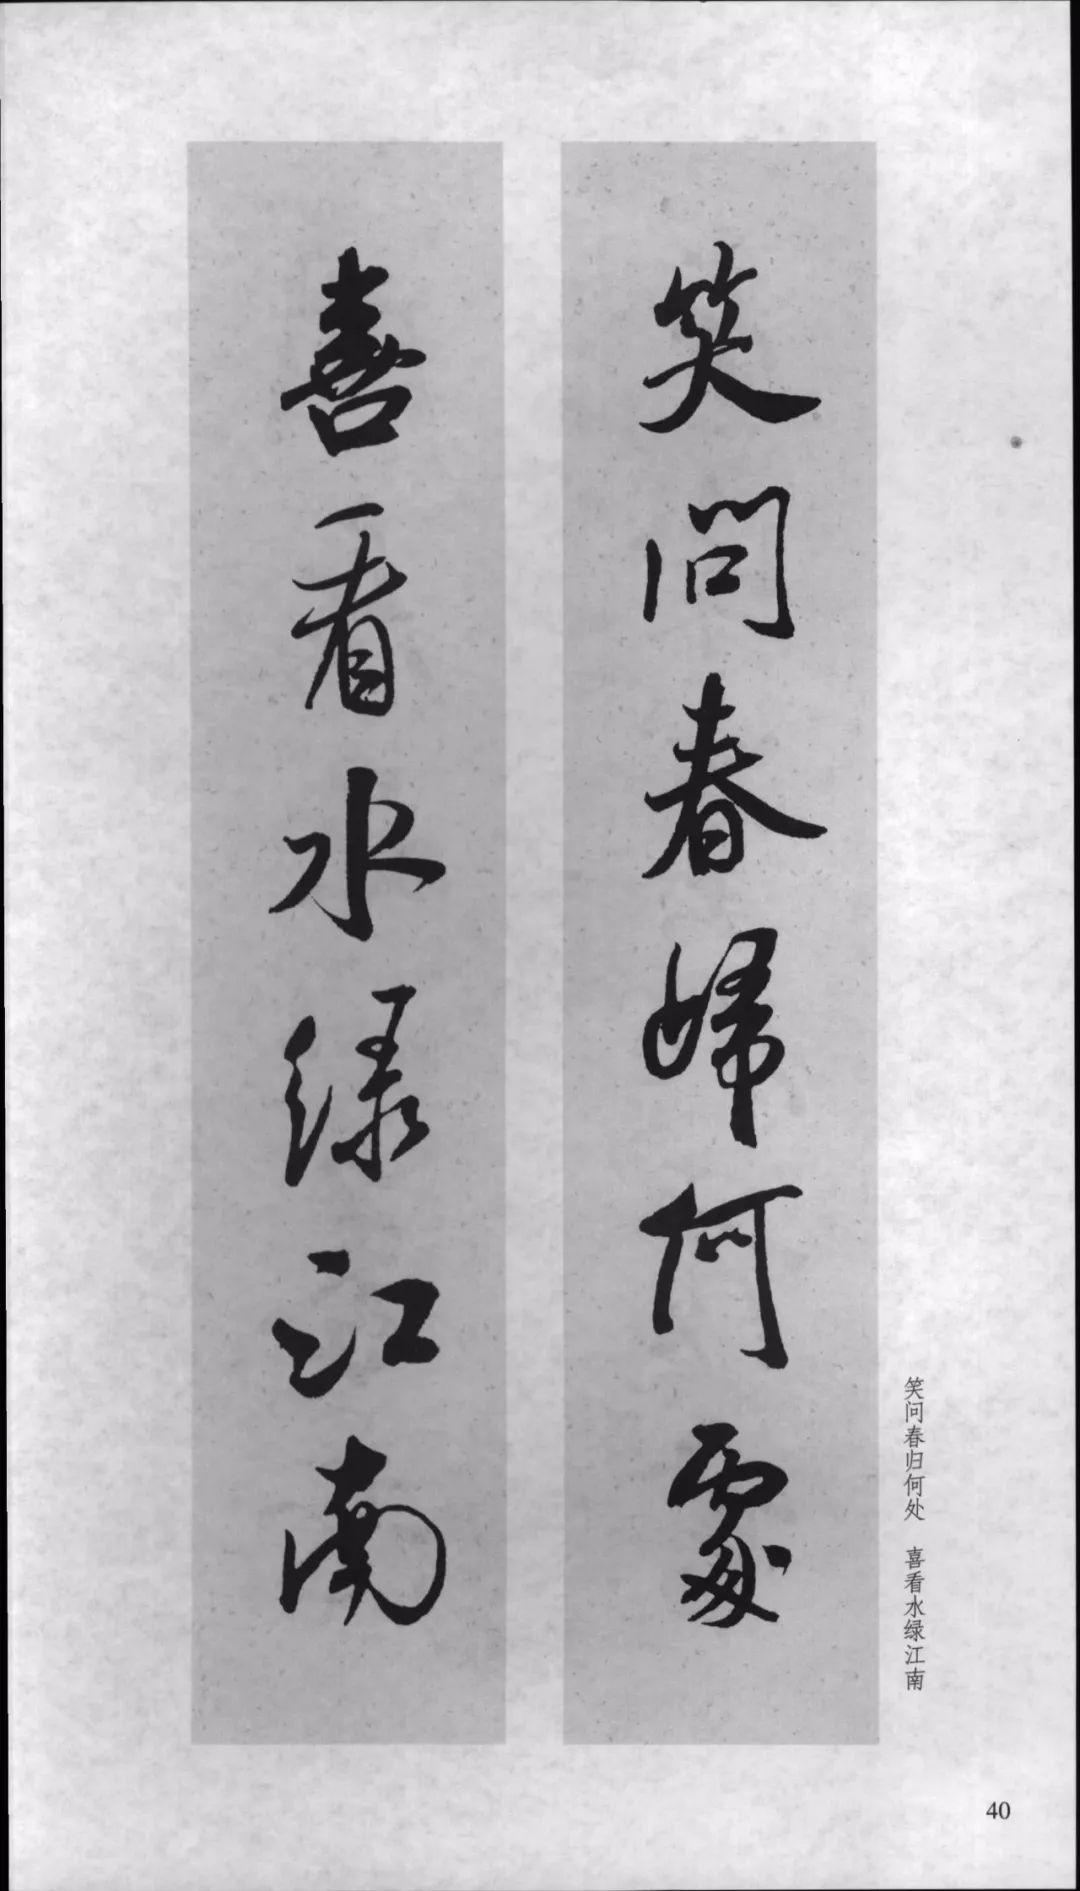 笑問春歸何處
喜看水緑江南
笑问春归何处 喜看水绿江南
40